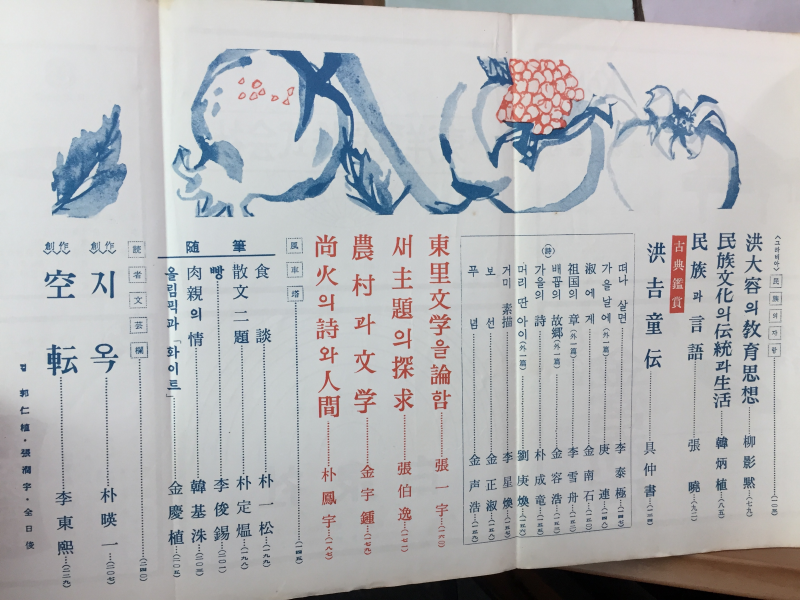 《그라비아》 民族의자랑 (一三)
洪大容의敎育思想 柳影黙 (七九)
民族文化의伝統과生活 韓炳植 (八五)
民族과言語 張暁 (九二)
古典鑑賞
洪吉童伝 具仲書
(詩)
떠나 살면 李泰極
가을날에(外一篇) 庚連
淑에게 金南石
祖国의 章(外一篇) 李雪舟
배꼽의 故郷(外一篇) 金容浩
가을의 詩 朴成竜
머리 딴 아이(外一篇) 劉庚煥
거미 素描 李星煥
보선 金正淑
푸념 金声浩
東里文学을論함 張一宇
새主題의探求 張伯逸
農村과文学 金宇鍾
尚火의詩와人間 朴鳳宇
風車塔 (一四五)
随筆
食談 朴一松
散文二題 朴定熅
빵 李俊錫 (二〇一)
肉親의情 韓基洙 (二〇三)
올림픽과「화이트」 金慶植 (二〇五)
読者文芸欄
創作 지옥 朴暎一 (二〇七)
創作 空転 李東熙 (二二九)
컽 郭仁植・張潤宇・全日俊